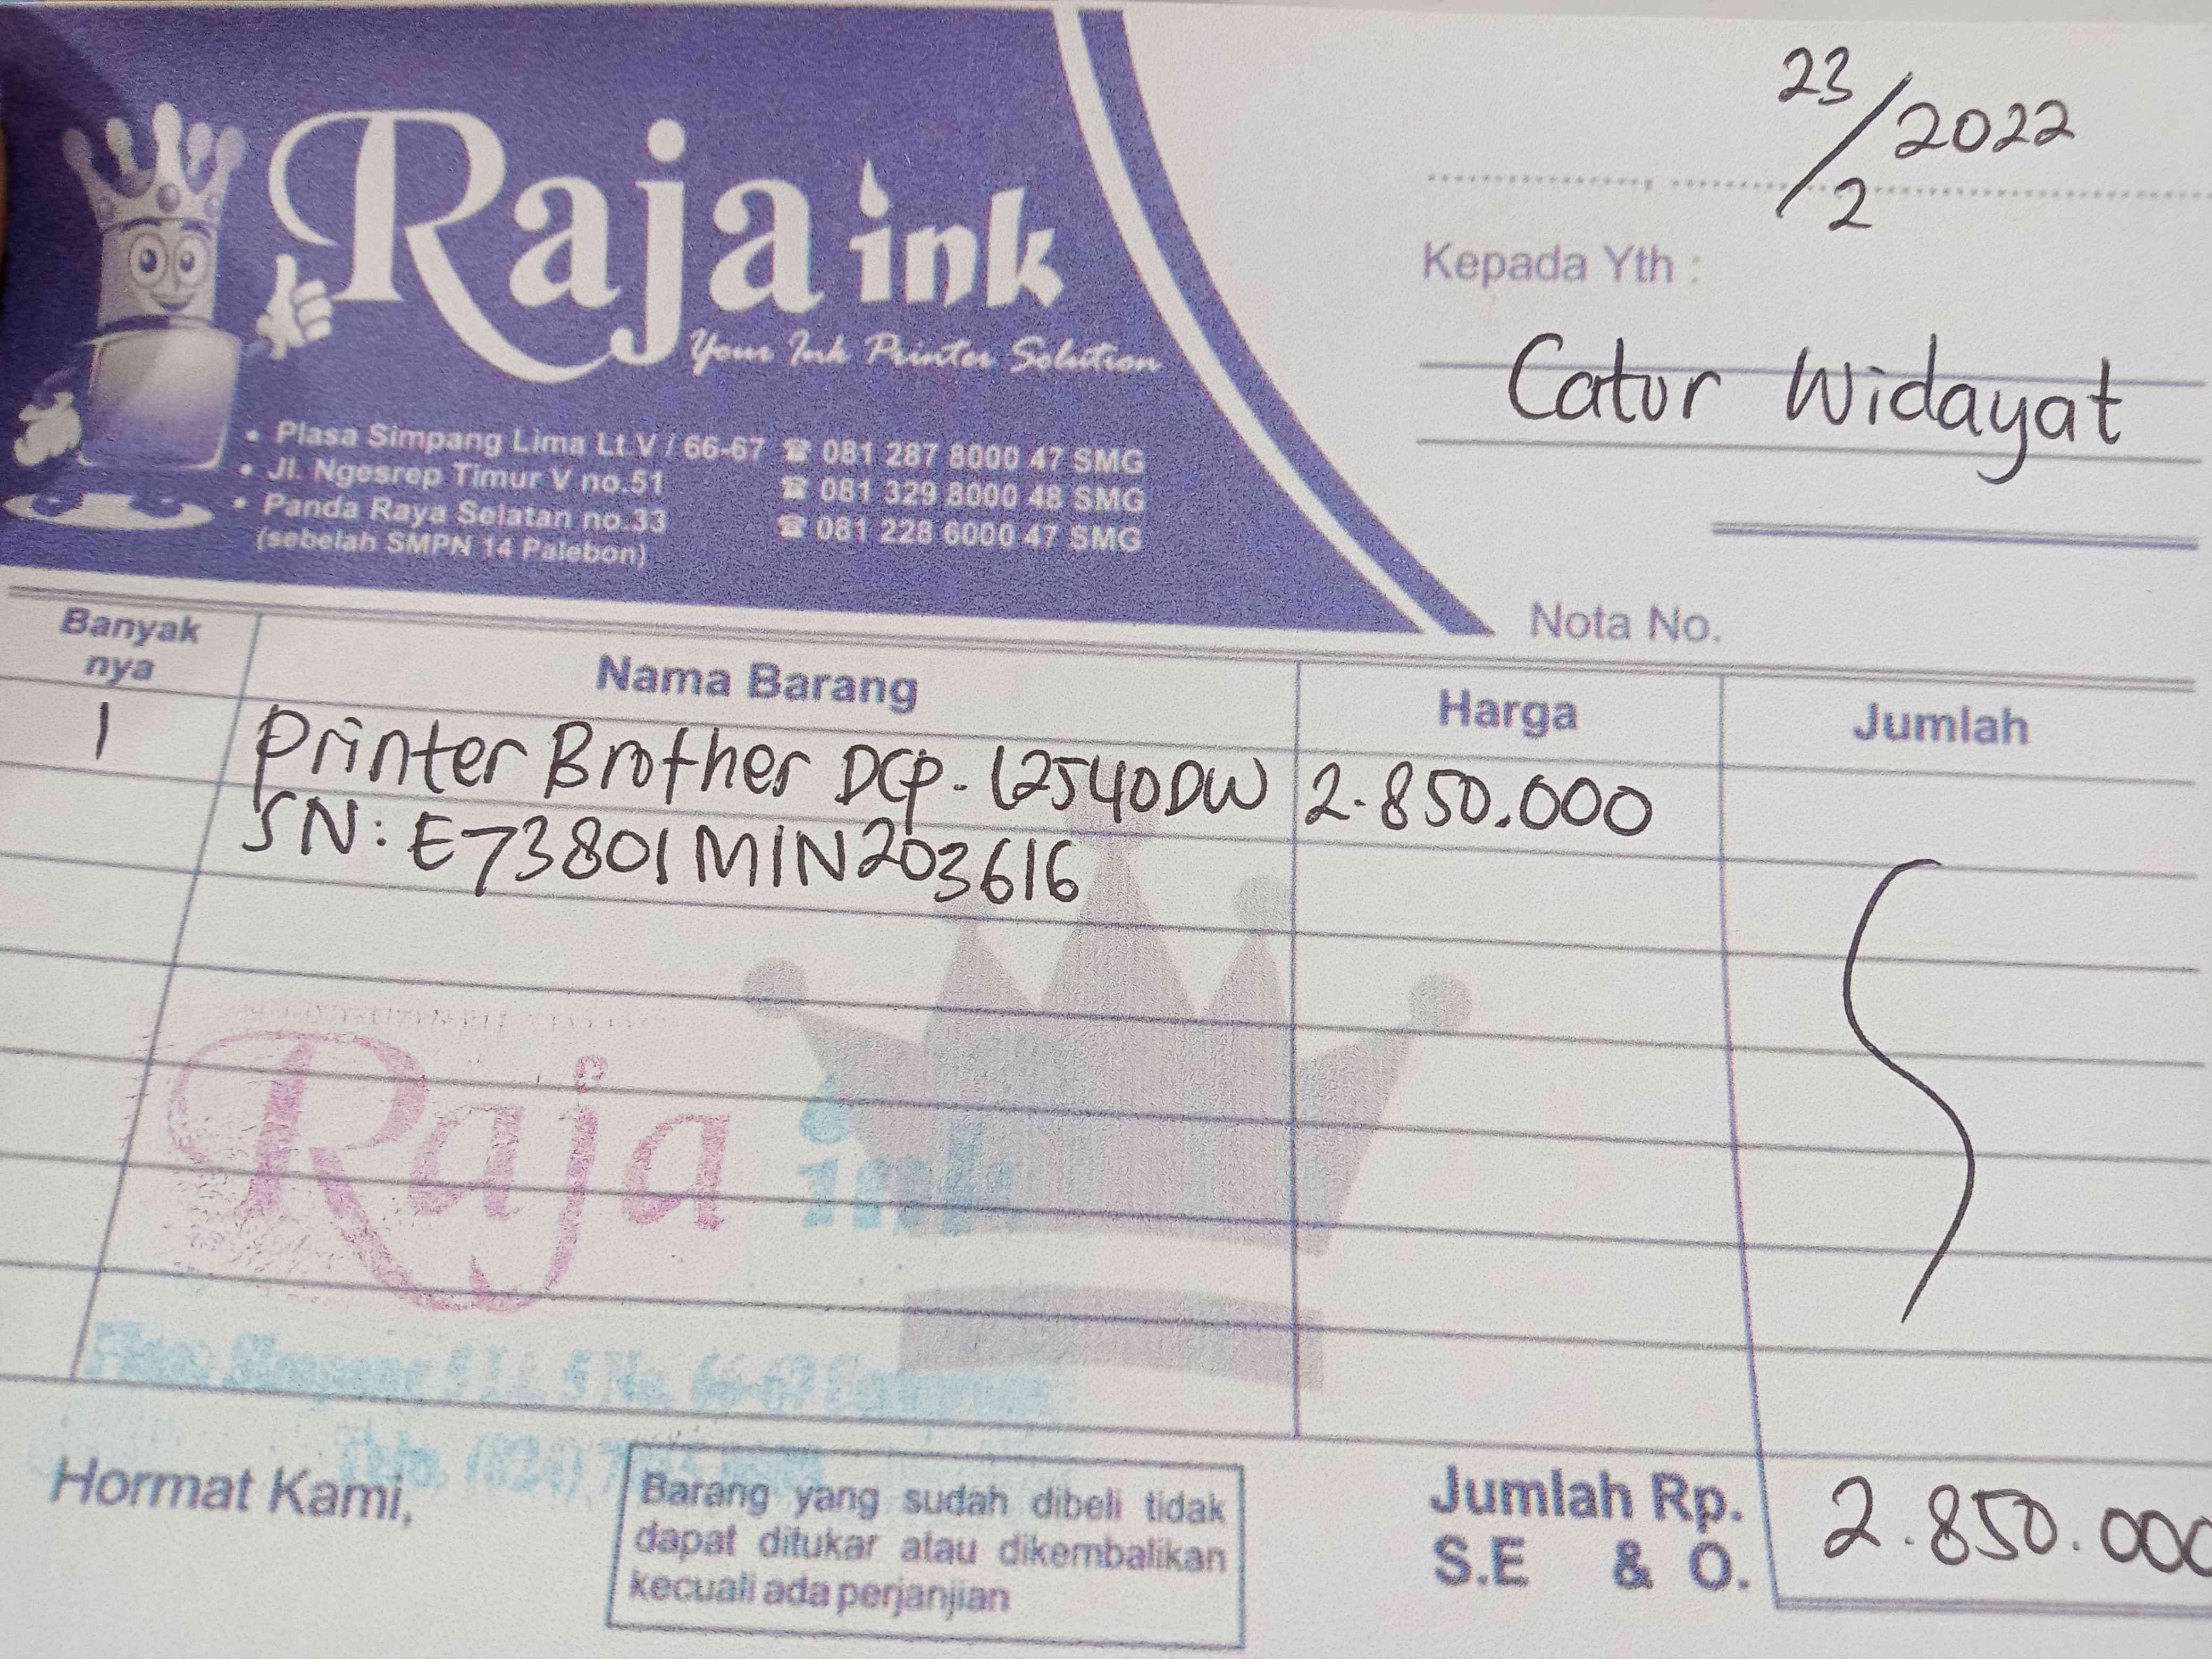 Raja ink
Your Ink Printer Solution
• Plasa Simpang Lima Lt.V / 66-67 ☎ 081 287 8000 47 SMG
• Jl. Ngesrep Timur V no.51 ☎ 081 329 8000 48 SMG
• Panda Raya Selatan no.33 ☎ 081 228 6000 47 SMG
(sebelah SMPN 14 Palebon)
23/2 2022
Kepada Yth :
Catur Widayat
Nota No.
Banyak nya Nama Barang Harga Jumlah
1 Printer Brother DCP-L2540DW 2.850.000
SN: E73801M1N203616
Raja ink
Hormat Kami,
Barang yang sudah dibeli tidak
dapat ditukar atau dikembalikan
kecuali ada perjanjian
Jumlah Rp. 2.850.000
S.E & O.